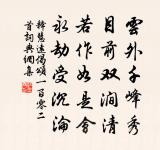 雲外千峰秀
目前双澗清
若作如是會
永劫受沉淪
釋慧遠偈頌一百零二
首詞典網集